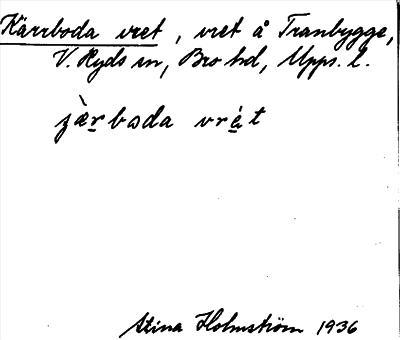 Kärrboda vret, vret å Tranbygge,
V. Ryds sn, Bro hd, Upps. l.
jæ̀rboda vrét
Stina Holmström 1936